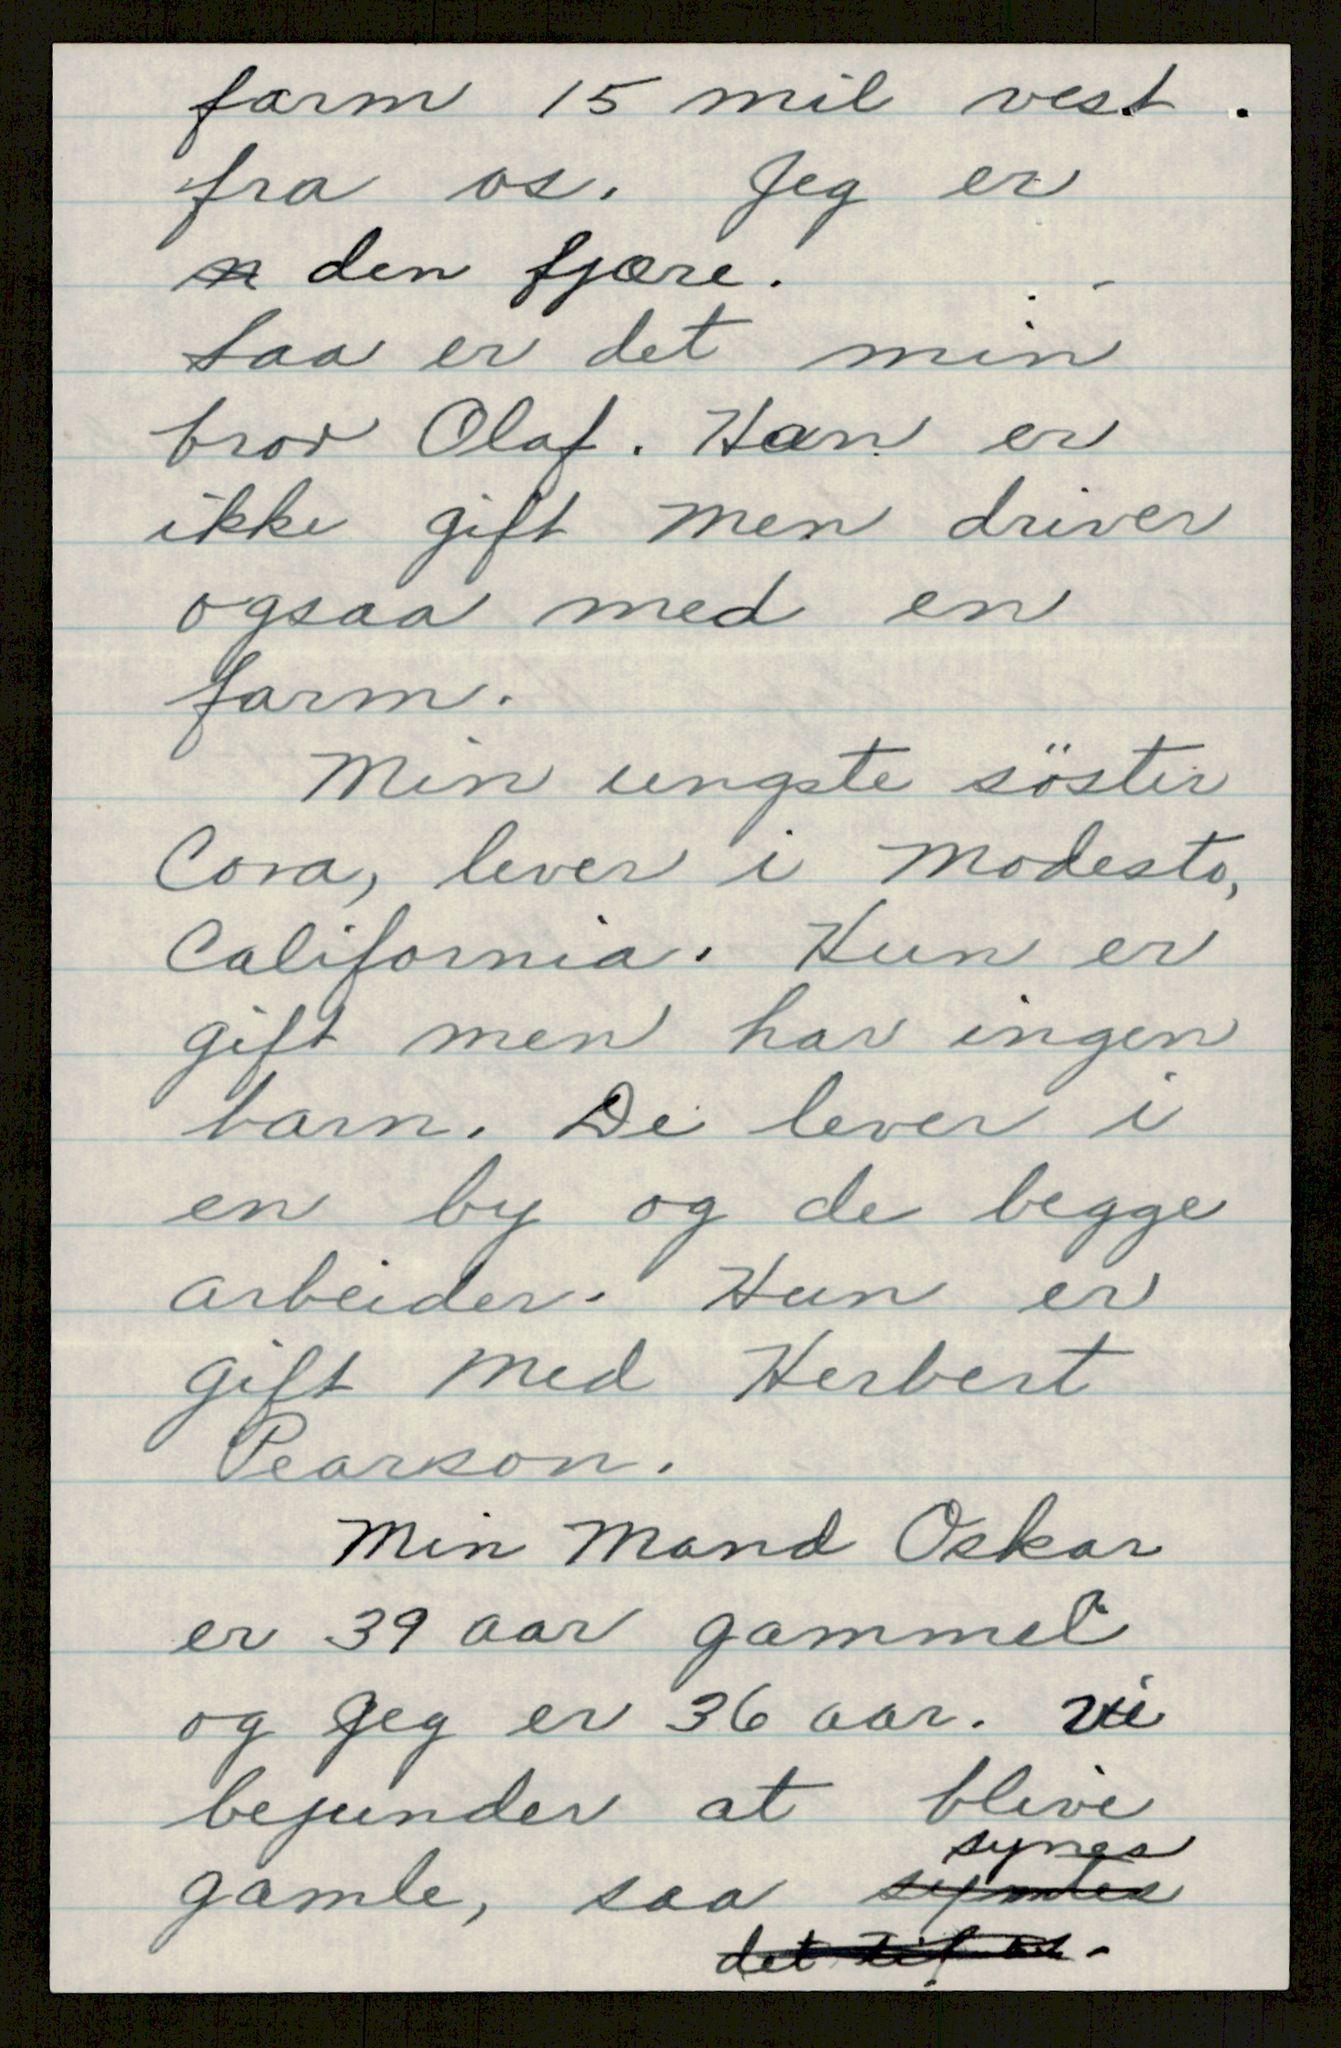 farm 15 mil vest.
fra os. Jeg er
n den fjære.
Saa er det min
bror Olaf. Han er
ikke gift men driver
ogsaa med en
farm.
Min ungste söster
Cora, lever i Modesto,
California. Hun er
gift men har ingen
barn. De lever i
en by og de begge
arbeider. Hun er
gift med Herbert
Pearson.
Min Mand Oskar
er 39 aar gammel
og Jeg er 36 aar. Vi
bejunder at blive
synes
gamle, saa symdes
det til os.